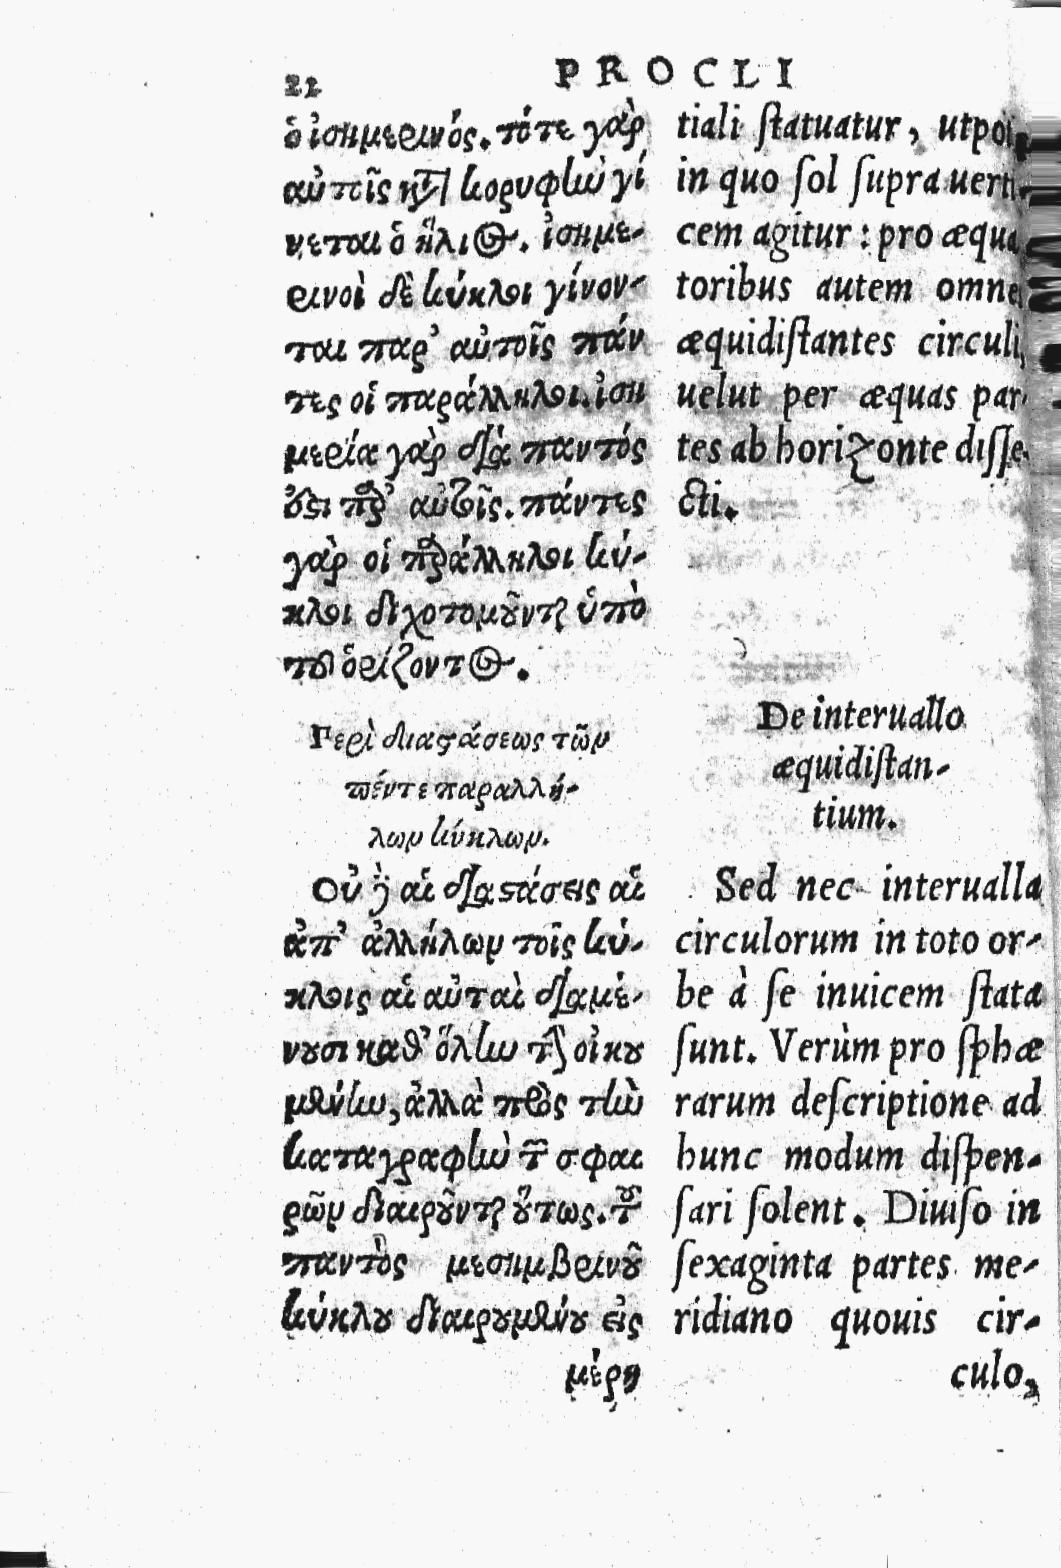 22
PROCLI
ὁ ἰσημερινός. τότε γὰρ
αὐτοῖς κατὰ κορυφὴν γί
νεται ὁ ἥλιος. ἰσημε-
ρινοὶ δὲ κύκλοι γίνον-
ται παρ' αὐτοῖς πάν
τες οἱ παράλληλοι. ἰση
μερία γὰρ διὰ παντός
ἐστι παρ' αὐτοῖς. πάντες
γὰρ οἱ παράλληλοι κύ-
κλοι διχοτομοῦνται ὑπὸ
τοῦ ὁρίζοντος.
Περὶ διαστάσεως τῶν
πέντε παραλλή-
λων κύκλων.
Οὐ δὲ αἱ διαστάσεις αἱ
ἀπ' ἀλλήλων τοῖς κύ-
κλοις αἱ αὐταὶ διαμέ-
νουσι καθ' ὅλην τὴν οἰκου
μένην, ἀλλὰ πρὸς τὴν
καταγραφὴν τῶν σφαι
ρῶν διαιροῦνται οὕτως. τοῦ
παντὸς μεσημβρινοῦ
κύκλου διαιρουμένου εἰς
μέρη
tiali ſtatuatur, utpot
in quo ſol ſupra uerti-
cem agitur: pro æqua
toribus autem omnes
æquidiſtantes circuli,
uelut per æquas par-
tes ab horizonte diſſe-
cti.
De interuallo
æquidiſtan-
tium.
Sed nec interualla
circulorum in toto or-
be à ſe inuicem ſtata
ſunt. Verùm pro ſphæ
rarum deſcriptione ad
hunc modum diſpen-
ſari ſolent. Diuiſo in
ſexaginta partes me-
ridiano quouis cir-
culo,